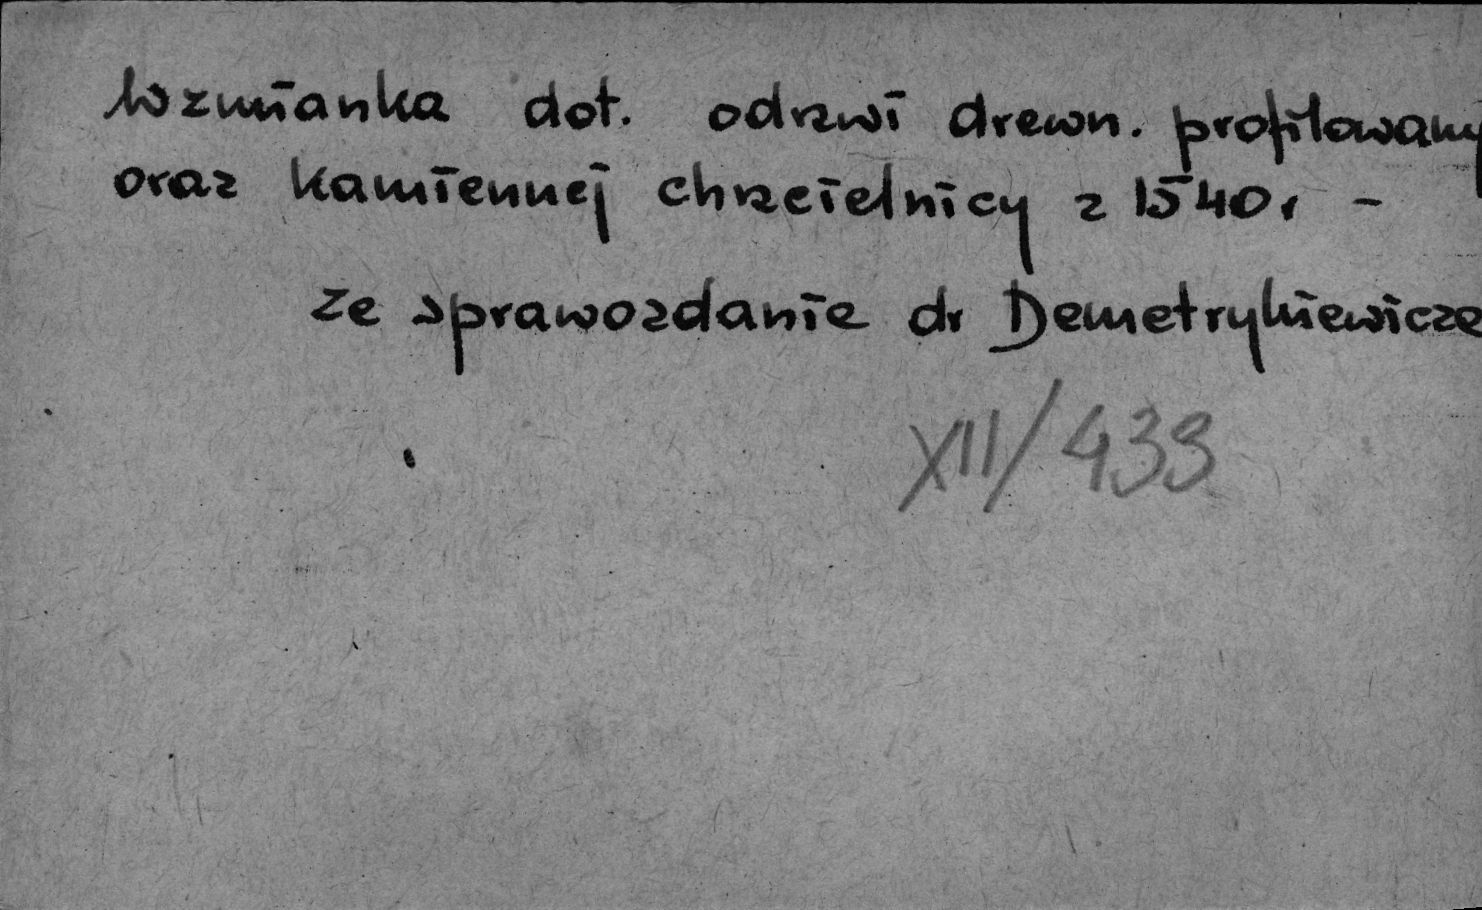 Wzmianka dot. odrzwi drewn. profilowany
oraz kamiennej chrzcielnicy z 1540 r –
ze sprawozdanie dr Demetrykiewicze
XII/433